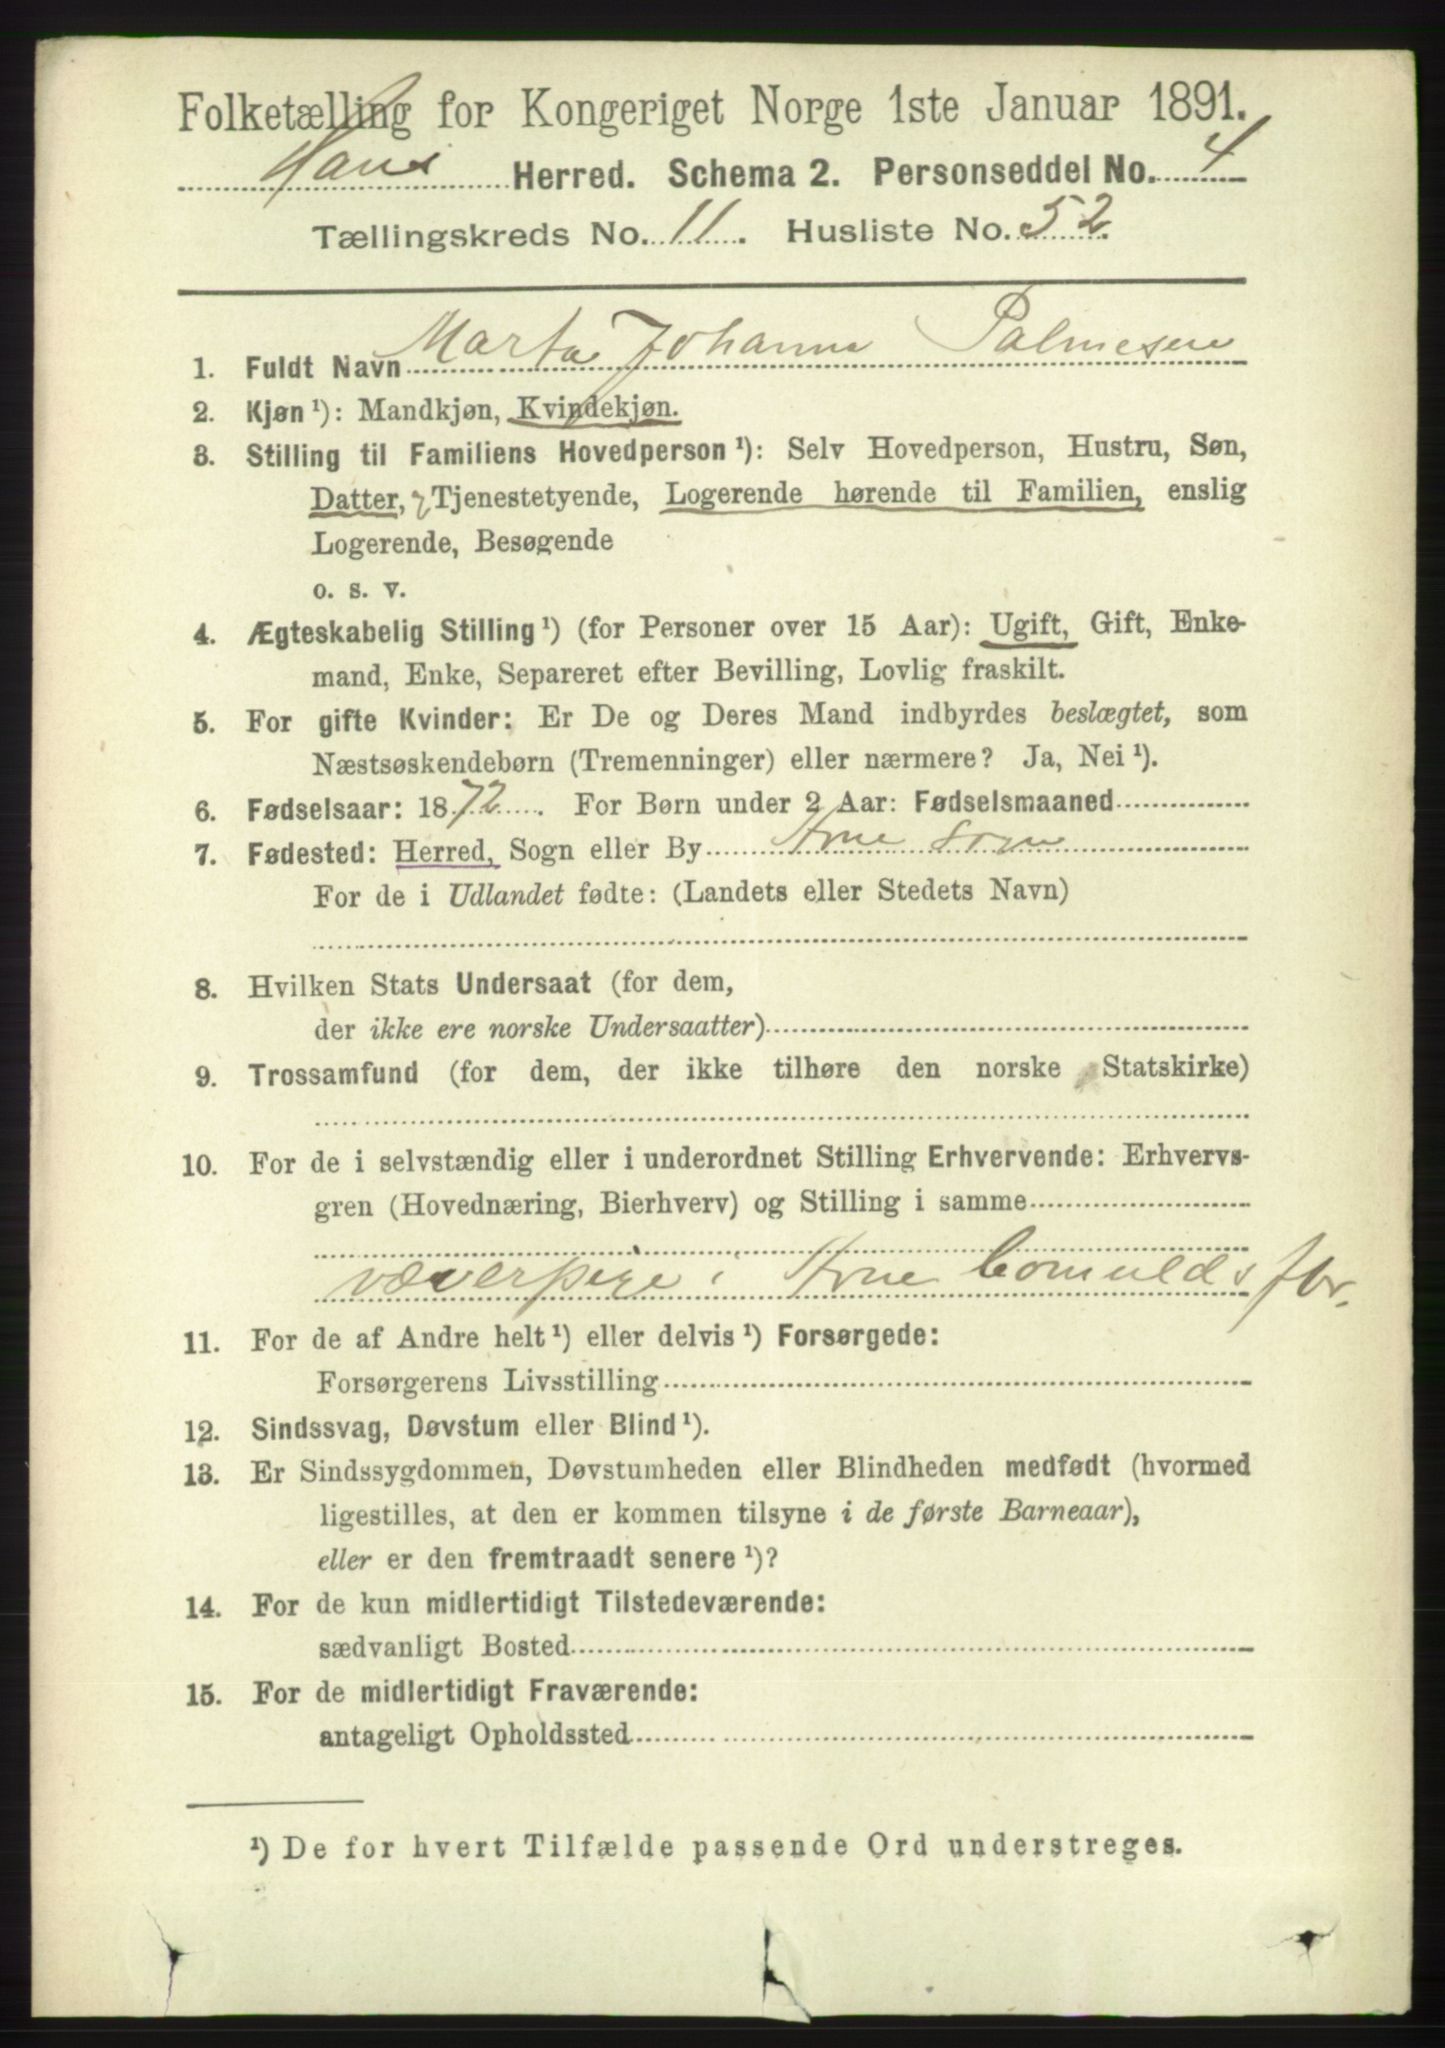 Folketælling for Kongeriget Norge 1ste Januar 1891.
Haus Herred. Schema 2. Personseddel No. 4
Tællingskreds No. 11. Husliste No. 52.
1. Fuldt Navn Marta Johanne Palmesen
2. Kjøn¹): Mandkjøn, Kvindekjøn.
3. Stilling til Familiens Hovedperson¹): Selv Hovedperson, Hustru, Søn,
Datter, Tjenestetyende, Logerende hørende til Familien, enslig
Logerende, Besøgende
o. s. v.
4. Ægteskabelig Stilling¹) (for Personer over 15 Aar): Ugift, Gift, Enke-
mand, Enke, Separeret efter Bevilling, Lovlig fraskilt.
5. For gifte Kvinder: Er De og Deres Mand indbyrdes beslægtet, som
Næstsøskendebørn (Tremenninger) eller nærmere? Ja, Nei¹).
6. Fødselsaar: 1872. For Børn under 2 Aar: Fødselsmaaned
7. Fødested: Herred, Sogn eller By Arne Sogn
For de i Udlandet fødte: (Landets eller Stedets Navn)
8. Hvilken Stats Undersaat (for dem,
der ikke ere norske Undersaatter)
9. Trossamfund (for dem, der ikke tilhøre den norske Statskirke)
10. For de i selvstændig eller i underordnet Stilling Erhvervende: Erhvervs-
gren (Hovednæring, Bierhverv) og Stilling i samme
væverpige i Arne bomulds fbr.
11. For de af Andre helt¹) eller delvis¹) Forsørgede:
Forsørgerens Livsstilling
12. Sindssvag, Døvstum eller Blind¹).
13. Er Sindssygdommen, Døvstumheden eller Blindheden medfødt (hvormed
ligestilles, at den er kommen tilsyne i de første Barneaar),
eller er den fremtraadt senere¹)?
14. For de kun midlertidigt Tilstedeværende:
sædvanligt Bosted
15. For de midlertidigt Fraværende:
antageligt Opholdssted
¹) De for hvert Tilfælde passende Ord understreges.